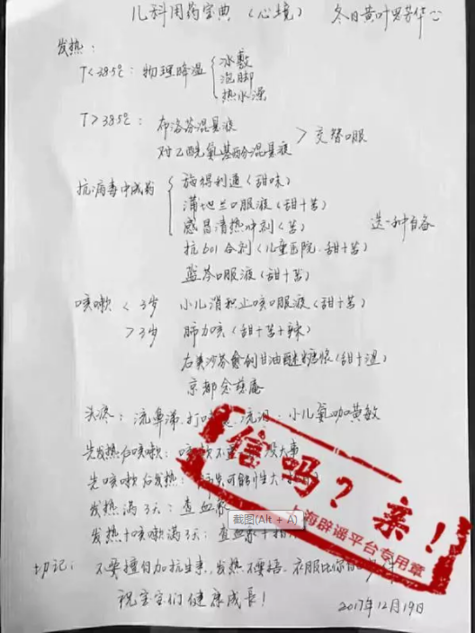 儿科用药宝典 (心境)
发热:
T<38.5℃: 物理降温 冰敷
泡脚
热水澡
T>38.5℃: 布洛芬混悬液
对乙酰氨基酚混悬液 > 交替口服
抗病毒中成药 施保利通 (甜味)
蒲地兰口服液 (甜+苦)
感冒清热冲剂 (苦)
选一种自备
抗601合剂 (儿童医院 甜+苦)
蓝芩口服液 (甜+苦)
咳嗽 < 3岁 小儿消积止咳口服液 (甜+苦)
> 3岁 肺力咳 (甜+苦+辣)
右美沙芬愈创甘油醚糖浆 (甜+涩)
京都念慈庵
头疼: 流鼻涕, 打 流泪: 小儿氨咖黄敏
先发热后咳嗽: 咳嗽不 没大事
先咳嗽后发热:
发热满3天: 查血
发热+咳嗽满3天: 查血
切记: 不要擅自加抗生素, 发热不要捂, 衣服比你
祝宝宝们健康成长!
2017年12月19日
信吗? 亲!
海辟谣平台专用章
截图(Alt + A)